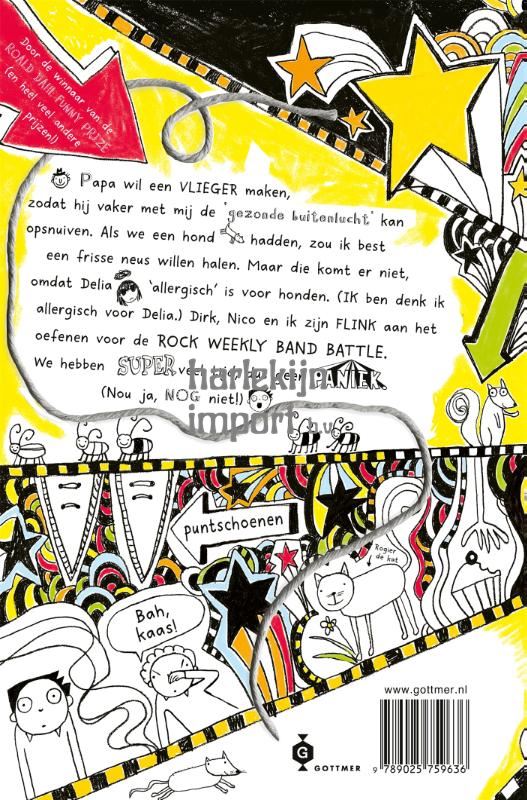 Door de winnaar van de
ROALD DAHL FUNNY PRIZE
(en heel veel andere
prijzen!)
Papa wil een VLIEGER maken,
zodat hij vaker met mij de 'gezonde buitenlucht' kan
opsnuiven. Als we een hond hadden, zou ik best
een frisse neus willen halen. Maar die komt er niet,
omdat Delia 'allergisch' is voor honden. (IK ben denk ik
allergisch voor Delia.) Dirk, Nico en ik zijn FLINK aan het
oefenen voor de ROCK WEEKLY BAND BATTLE.
We hebben SUPER veel tijd, dus geen PANIEK.
(Nou ja, NOG niet!)
harlekijn
import b.v.
puntschoenen
Rogier
de kat
Bah,
kaas!
www.gottmer.nl
G
GOTTMER
9 789025 759636